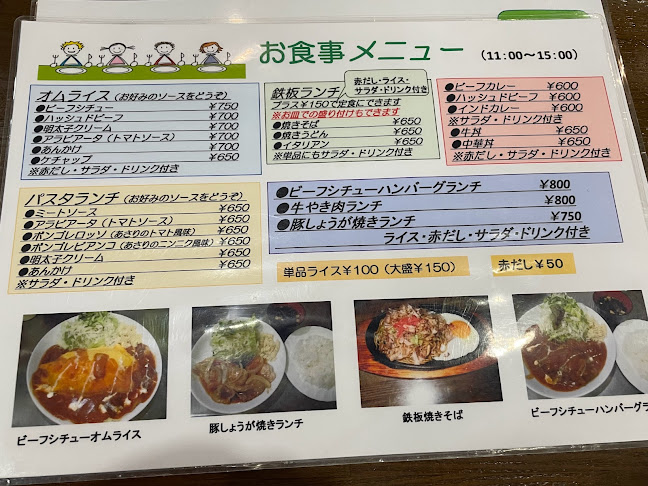 お食事メニュー (11:00～15:00)
オムライス (お好みのソースをどうぞ)
●ビーフシチュー ¥750
●ハッシュドビーフ ¥700
●明太子クリーム ¥700
●アラビアータ (トマトソース) ¥700
●あんかけ ¥700
●ケチャップ ¥650
※赤だし・サラダ・ドリンク付き
鉄板ランチ
赤だし・ライス・
サラダ・ドリンク付き
プラス¥150で定食にできます
※お皿での盛り付けもできます
●焼きそば ¥650
●焼きうどん ¥650
●イタリアン ¥650
※単品にもサラダ・ドリンク付き
●ビーフカレー ¥600
●ハッシュドビーフ ¥600
●インドカレー ¥650
※サラダ・ドリンク付き
●牛丼 ¥650
●中華丼 ¥650
※赤だし・サラダ・ドリンク付き
パスタランチ (お好みのソースをどうぞ)
●ミートソース ¥650
●アラビアータ (トマトソース) ¥650
●ボンゴレロッソ (あさりのトマト風味) ¥650
●ボンゴレビアンコ (あさりのニンニク風味) ¥650
●明太子クリーム ¥650
●あんかけ ¥650
※サラダ・ドリンク付き
●ビーフシチューハンバーグランチ ¥800
●牛やき肉ランチ ¥800
●豚しょうが焼きランチ ¥750
ライス・赤だし・サラダ・ドリンク付き
単品ライス¥100 (大盛¥150)
赤だし¥50
ビーフシチューオムライス
豚しょうが焼きランチ
鉄板焼きそば
ビーフシチューハンバーグラ